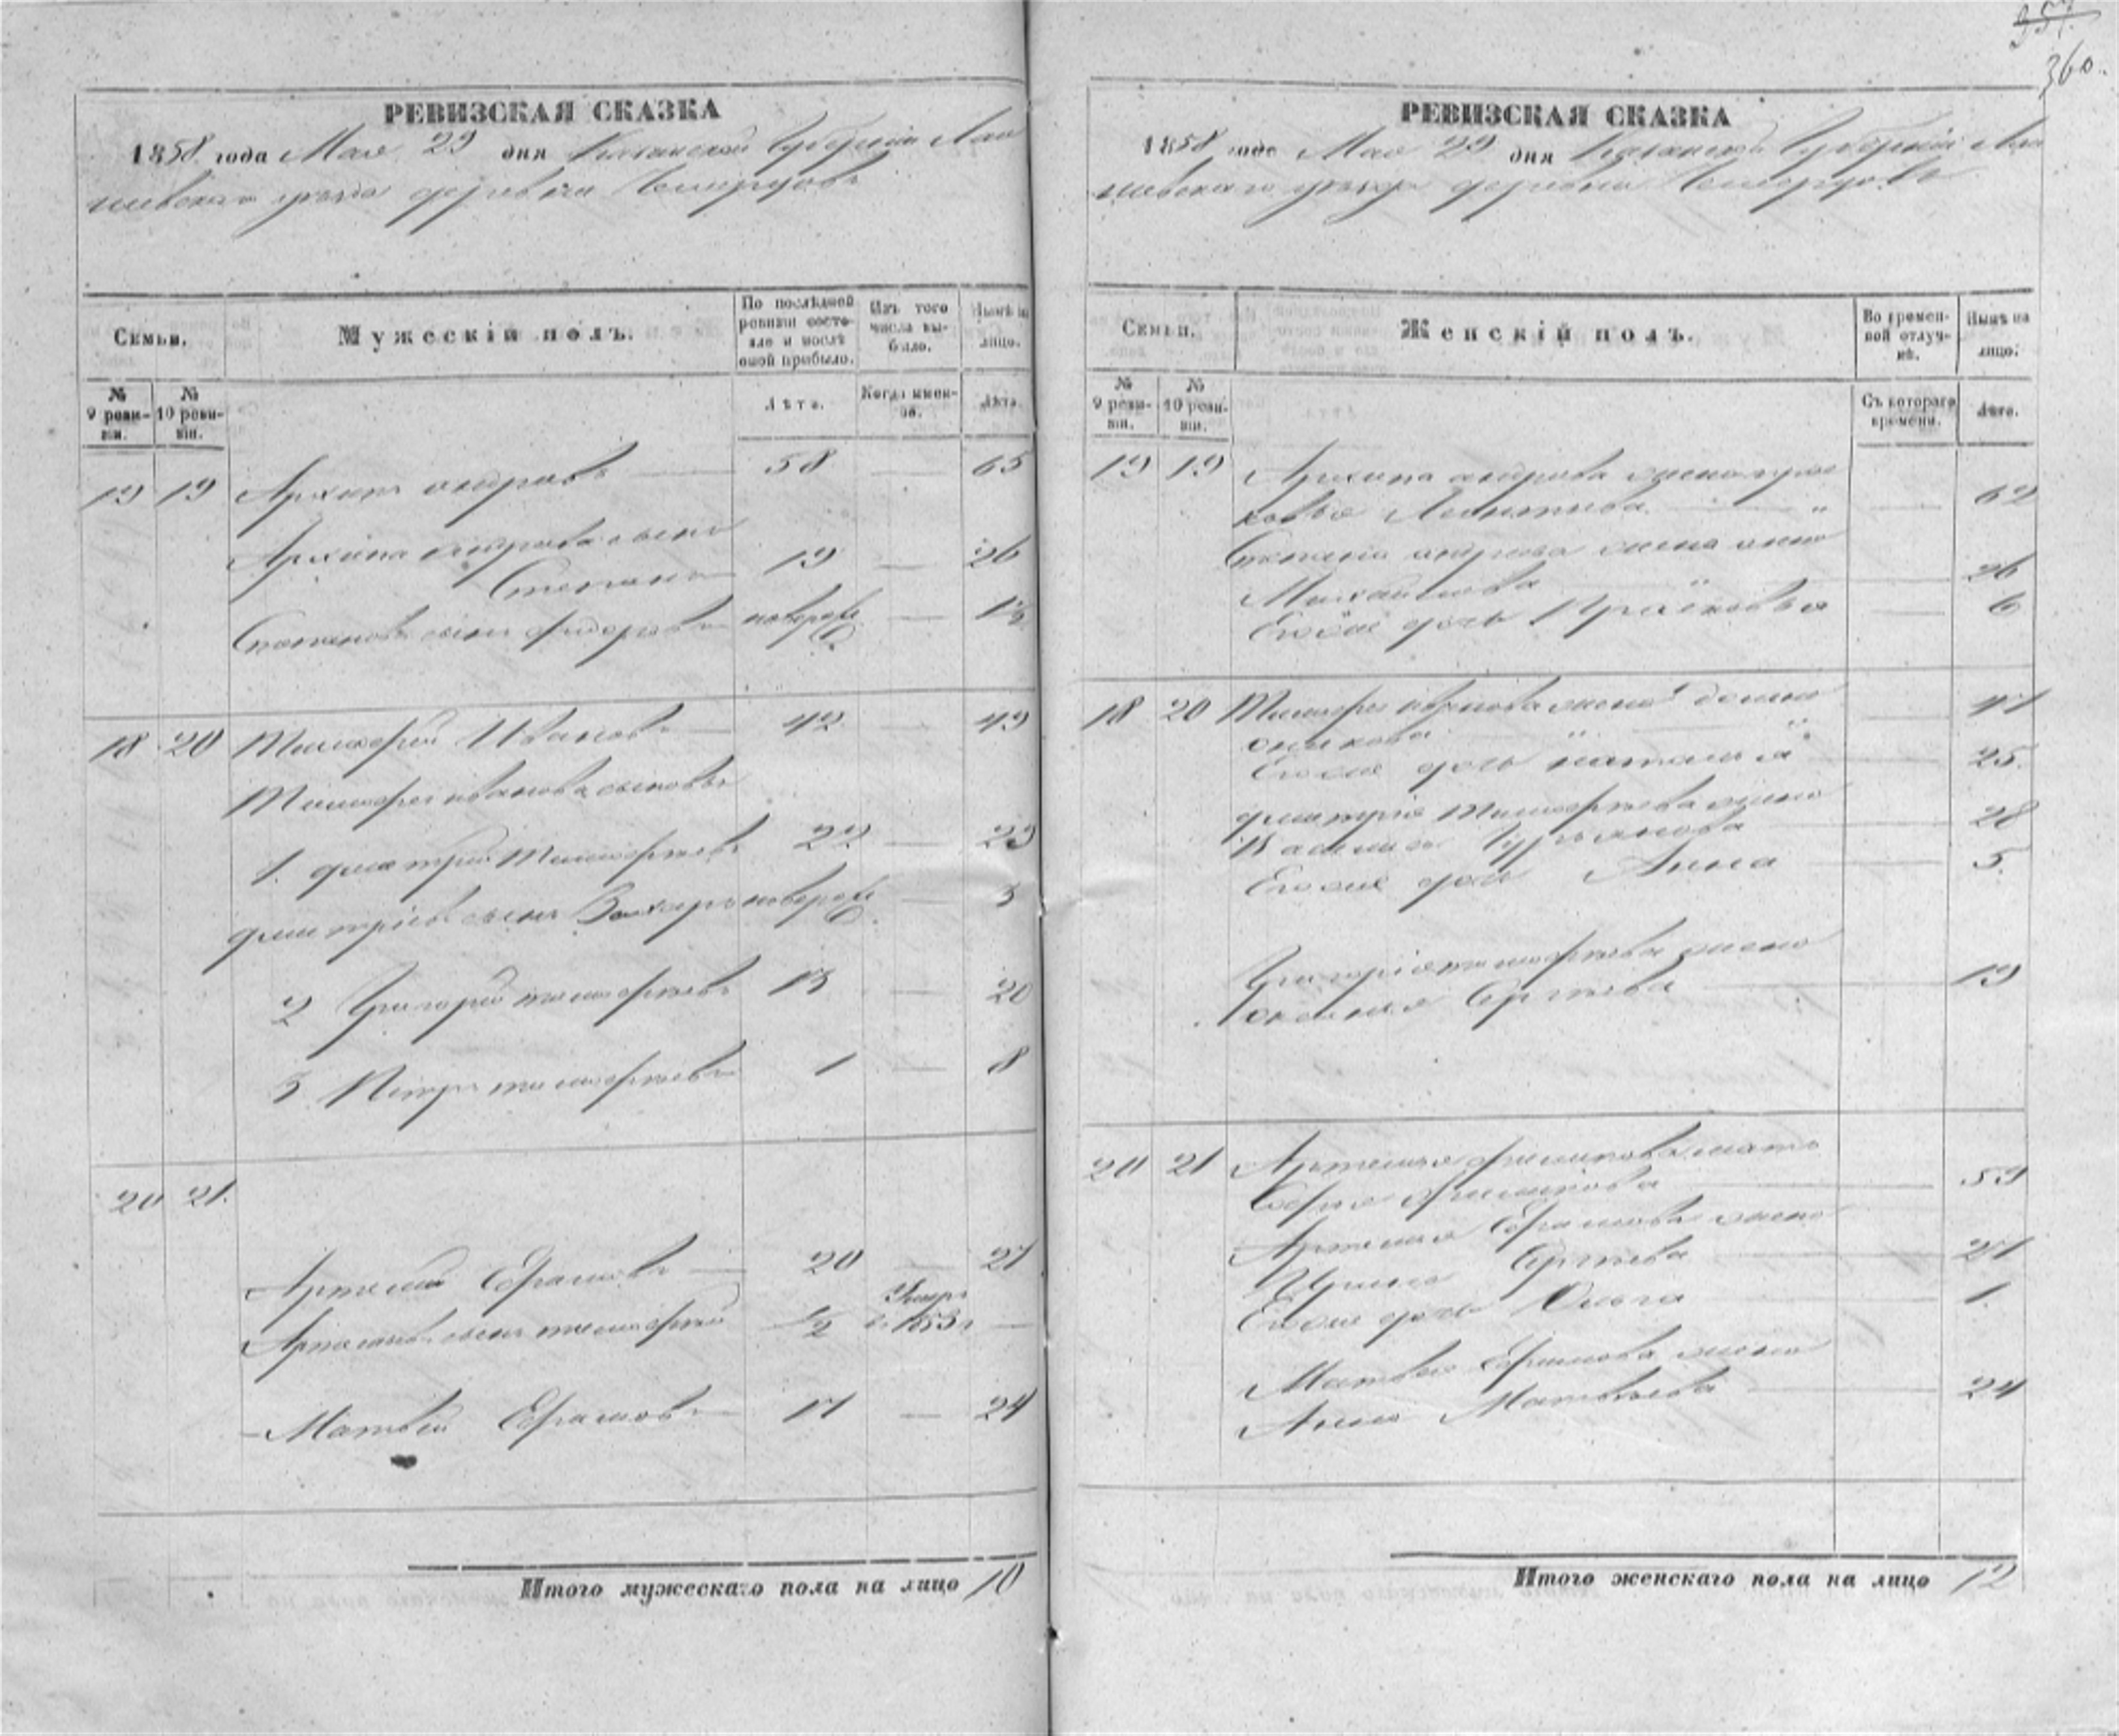 357.
360.
РЕВИЗСКАЯ СКАЗКА
1858 года Мая 29 дня Казанской Губернии Лаи
шевского уезда деревни
Семьи.
Мужескій полъ.
По послѣдней ревизіи состо-
яло и послѣ оной прибыло.
Изъ того числа вы-
было.
Нынѣ на лицо.
№ 9 реви-
зіи.
№ 10 реви-
зіи.
Лѣта.
Когда имен-
но.
Лѣта.
19 19 Архипъ 58 — 65
Архипа сынъ
Степанъ 19 — 26
Степановъ сынъ Федоръ новорож. —
18 20 Тимофей Ивановъ 42 — 49
Тимофея Иванова сыновья
1. Дмитрій Тимофеевъ 22 — 29
Дмитріевъ сынъ Захаръ новорож. — 3
2 Григорій Тимофеевъ 13 — 20
3 Петръ Тимофеевъ 1 — 8
20 21.
Артемій Ефимовъ 20 — 27
Артемьевъ сынъ Тимофей 1/2 Умеръ в 1853 г —
Матвѣй Ефимовъ 17 — 24
Итого мужескаго пола на лицо 10
РЕВИЗСКАЯ СКАЗКА
1858 года Мая 29 дня Казанской Губерніи Лаи
шевскаго уезда деревни
Семьи.
Женскій полъ.
Во времен-
ной отлуч-
кѣ.
Нынѣ на лицо.
№ 9 реви-
зіи.
№ 10 реви-
зіи.
Съ котораго времени.
Лѣта.
19 19 Архипа жена Прас
ковья 62
Степана жена Анна
Михайлова 26
Ево же дочь Прасковья 6
18 20 Тимофея Иванова жена 47
Ево же дочь Наталья 25.
Дмитрія Тимофеева жена
28
Ево же дочь Анна 5.
Григорія Тимофеева жена
Сергѣева 19
20 21 Артемья мать
59
Артемья Ефимова жена
Ирина Сергѣева 27
Ево же дочь Ольга 1.
Матвея Ефимова жена
Анна Матвѣева 24
Итого женскаго пола на лицо 12